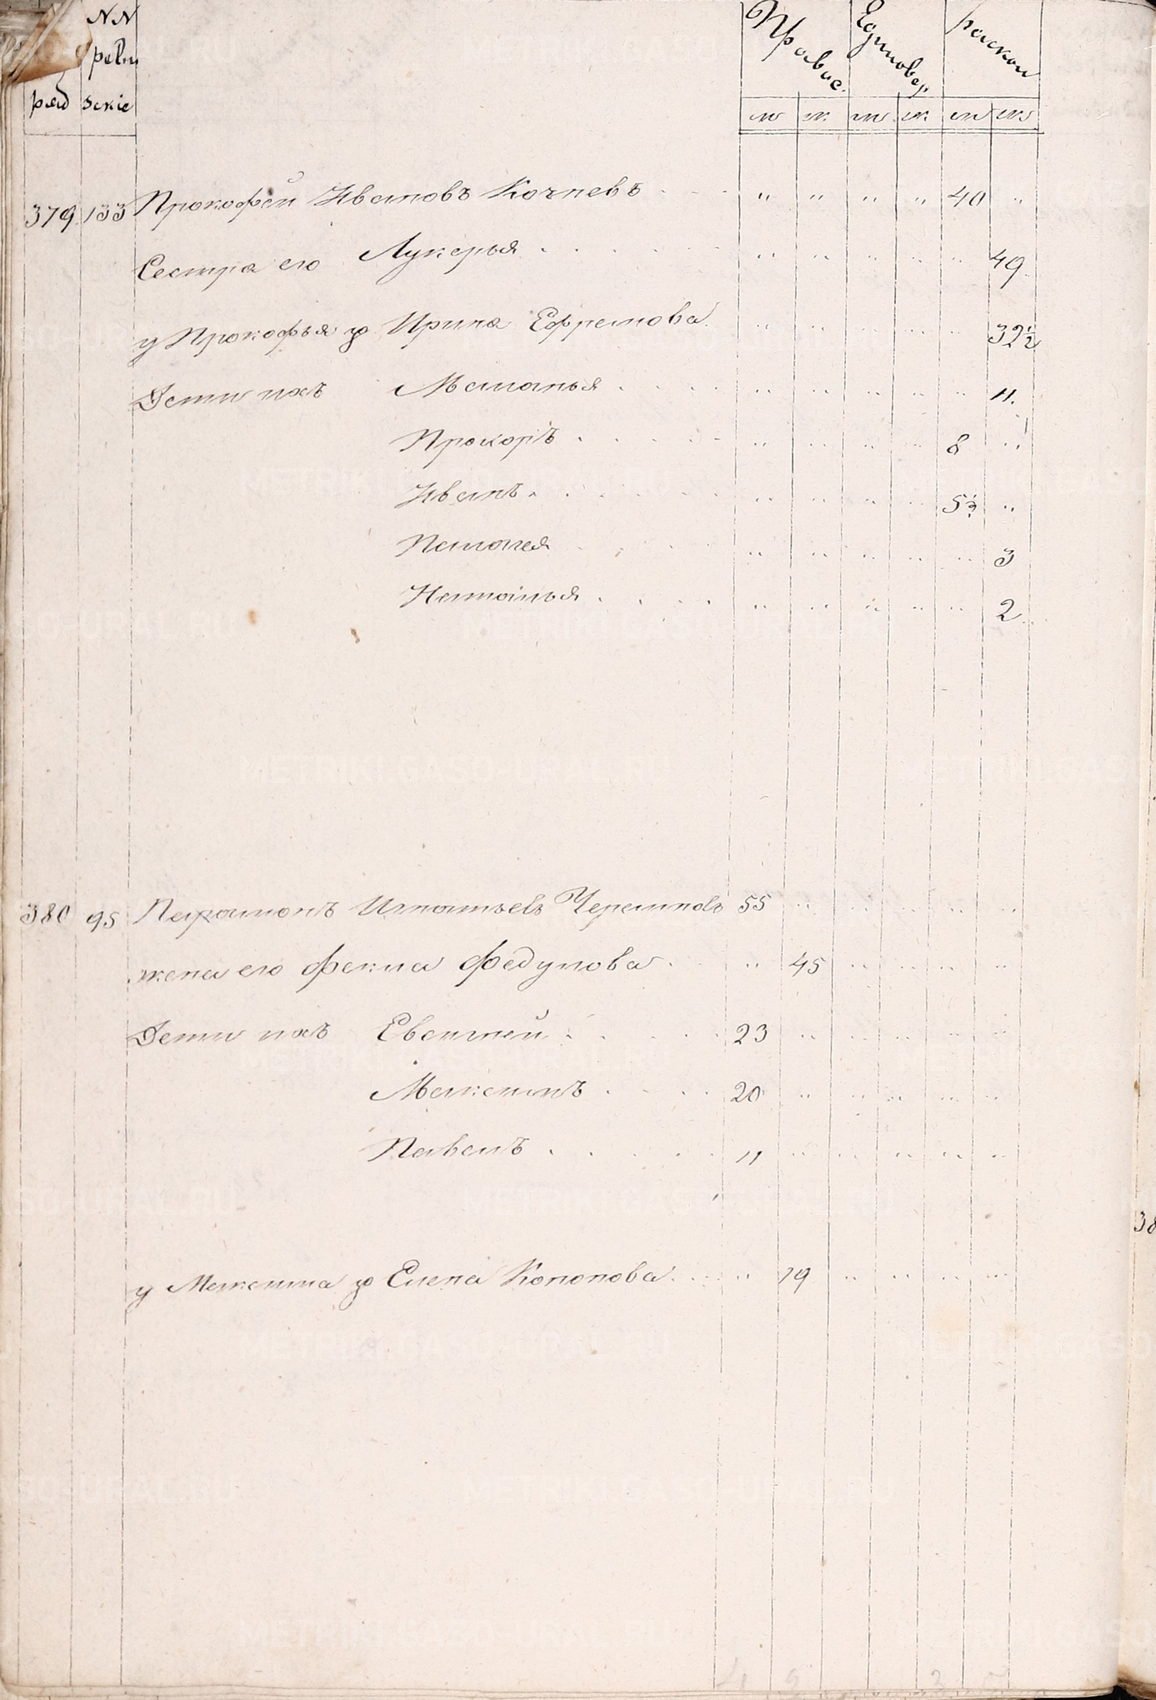 NN
ревиз
ряд
зские
Правос. Единовер. раскол
м ж м ж м ж
379. 133 Прокофей Ивановъ Кочневъ 40
Сестра его Лукерья 49.
у Прокофья ж Ирина Ефремова 32½
Дети ихъ Маланья 11.
Прохоръ 8
Иванъ 5½
Палагея 3
Наталья 2
380 95 Парамонъ Игнатьевъ Черемновъ 55
жена его Фекла Федулова 45
Дети ихъ Евгений 23
Максимъ 20
Павелъ 11
у Максима ж Елена Кононова 19
38